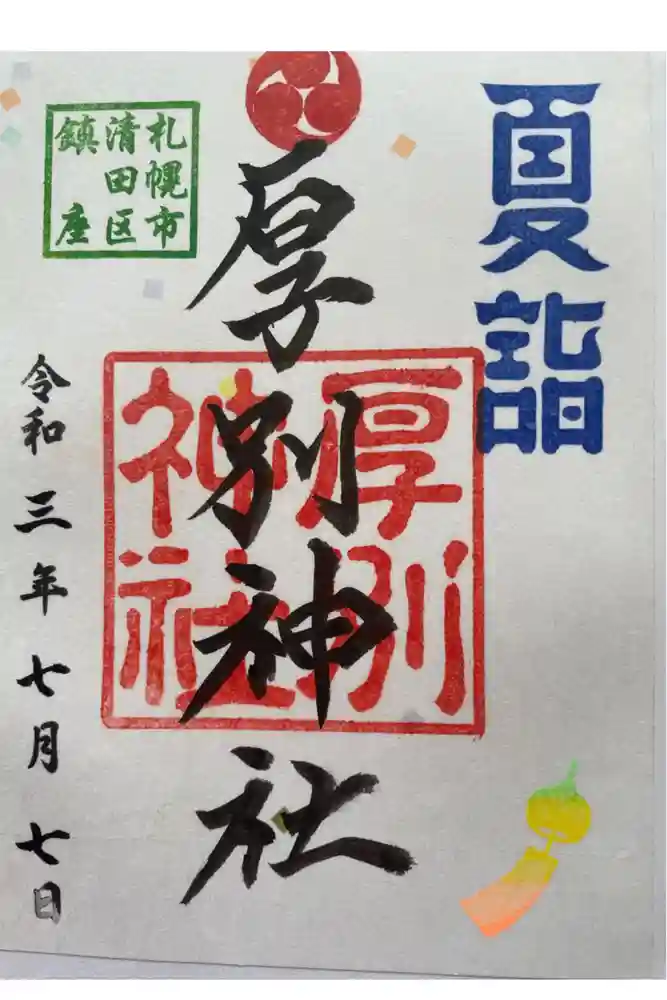 夏詣
厚別神社
厚別
神社
札幌市
清田区
鎮座
令和三年七月七日